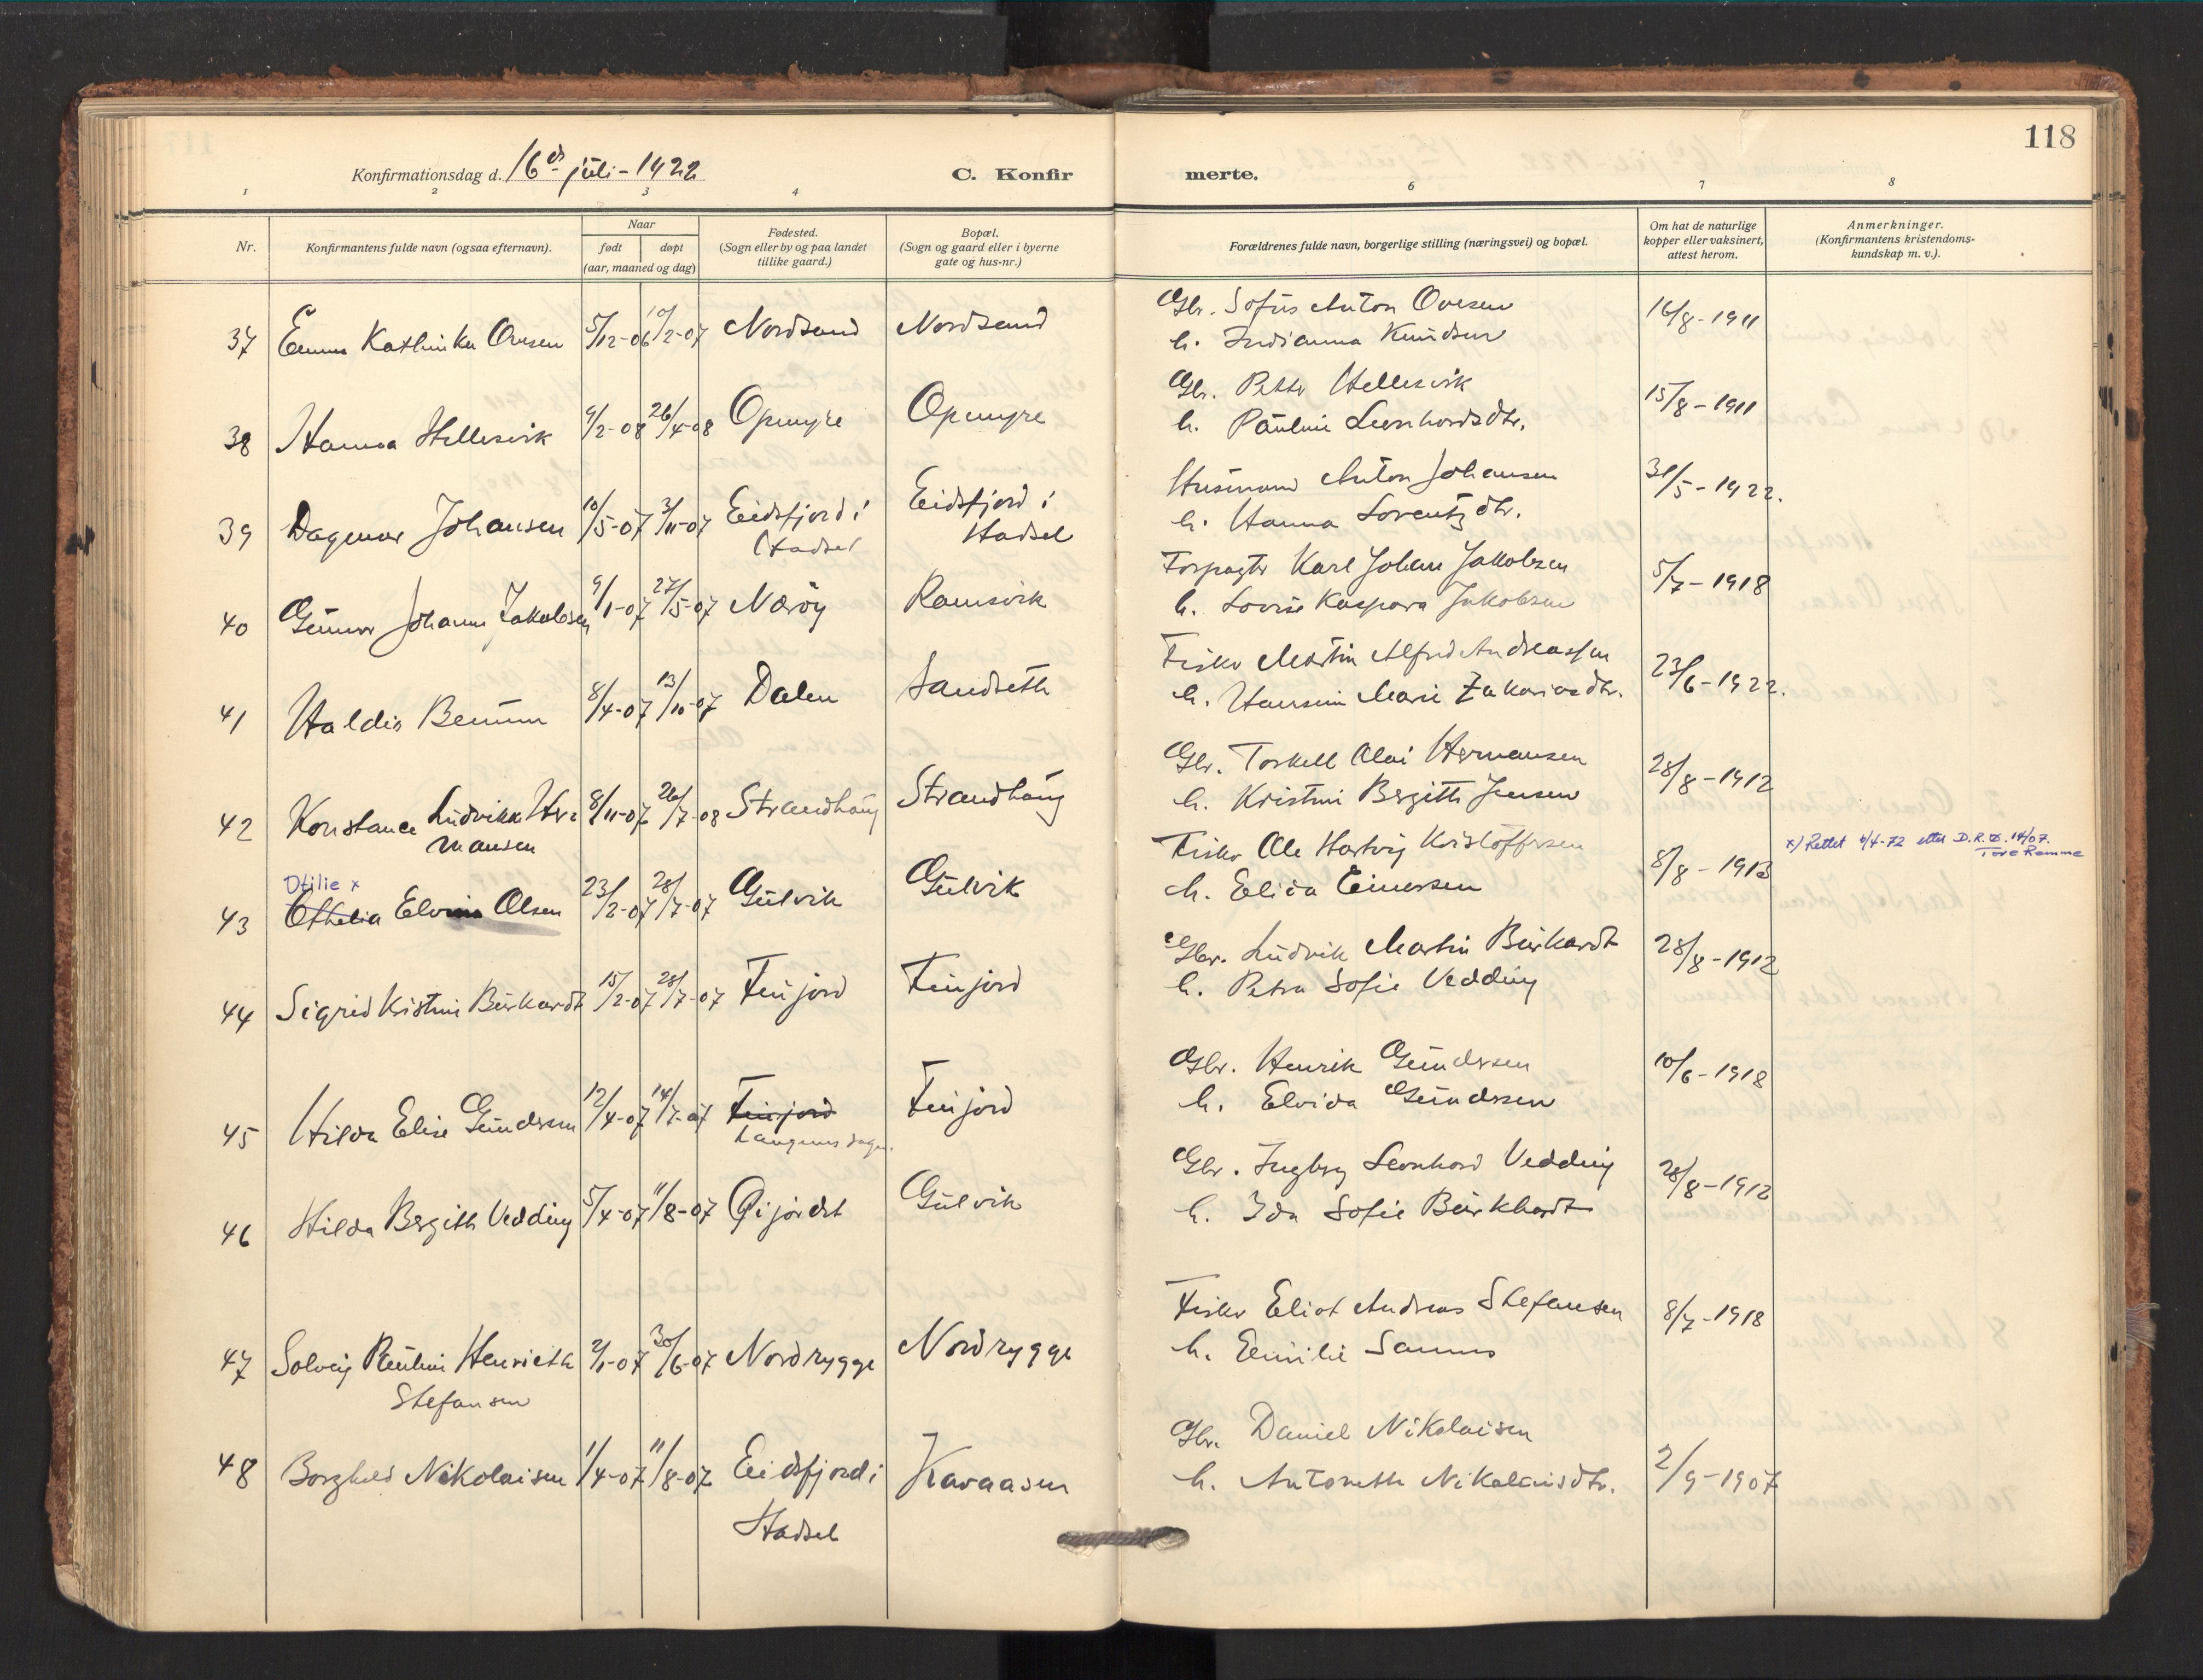 118
Konfirmationsdag d. 16de juli - 1922
C. Konfirmerte.
1 2 3 4 6 7 8
Nr.
Konfirmantens fulde navn (ogsaa efternavn).
Naar
født døpt
(aar, maaned og dag)
Fødested.
(Sogn eller by og paa landet
tillike gaard.)
Bopæl.
(Sogn og gaard eller i byerne
gate og hus-nr.)
Forældrenes fulde navn, borgerlige stilling (næringsvei) og bopæl.
Om hat de naturlige
kopper eller vaksinert,
attest herom.
Anmerkninger.
(Konfirmantens kristendoms-
kundskap m. v.).
37 Emma Kathinka Ovesen 5/12-06 10/2-07 Nordsand Nordsand
Gbr. Sofus Anton Ovesen
h. Indianna Knudsen
16/8-1911
38 Hanna Hellesvik 9/2-08 26/4-08 Opmyre Opmyre
Gbr. Petter Hellesvik
h. Pauline Leonhardsdtr.
15/8-1911
39 Dagmar Johansen 10/5-07 3/11-07 Eidsfjord i Hadsel Eidsfjord i Hadsel
Husmand Anton Johansen
h. Hanna Lorentzdtr.
31/5-1922.
40 Gunnar Johanne Jakobsen 9/1-07 27/5-07 Nærøy Ramsvik
Forpagter Karl Johan Jakobsen
h. Lovise Kaspara Jakobsen
5/7-1918
41 Haldis Benum 8/4-07 13/10-07 Dalen Sandseth
Fisker Martin Alfred Andreassen
h. Hansine Marie Zakariasdtr.
23/6-1922.
42 Konstance Ludvikke Her=
mansen
8/11-07 26/7-08 Strandhaug Strandhaug
Gbr. Torkell Olai Hermansen
h. Kristine Bergitte Jensen
28/8-1912
Otilie x
43 Othelia Elvine Olsen 23/2-07 28/7-07 Gulvik Gulvik
Fisker Ole Hartvig Kristoffersen
h. Elida Einersen
8/8-1913
x) Rettet 4/4-72 etter D.R. 14/07.
Tore Remme
44 Sigrid Kristine Burkardt 15/2-07 28/7-07 Finjord Finjord
Gbr. Ludvik Martin Burkardt
h. Petra Sofie Vedding
28/8-1912
45 Hilda Elise Gundersen 12/4-07 14/7-07 Finjord Finjord
Langenes sogn.
Gbr. Henrik Gundersen
h. Elvida Gundersen
10/6-1918
46 Hilda Bergitte Vedding 5/4-07 11/8-07 Gjordet Gulvik
Gbr. Ingbrg Leonhard Vedding
h. Ida Sofie Burkhardt
28/8-1912
47 Solveig Pauline Henriette
Stefansen
2/1-07 30/6-07 Nordrygge Nordrygge
Fisker Eliot Andreas Stefansen
h. Emilie Sannes
8/7-1918
48 Borghild Nikolaisen 1/4-07 11/8-07 Eidsfjord i
Hadsel
Kavaasen
Gbr. Daniel Nikolaisen
h. Antonette Nikolaisdtr.
2/9-1907